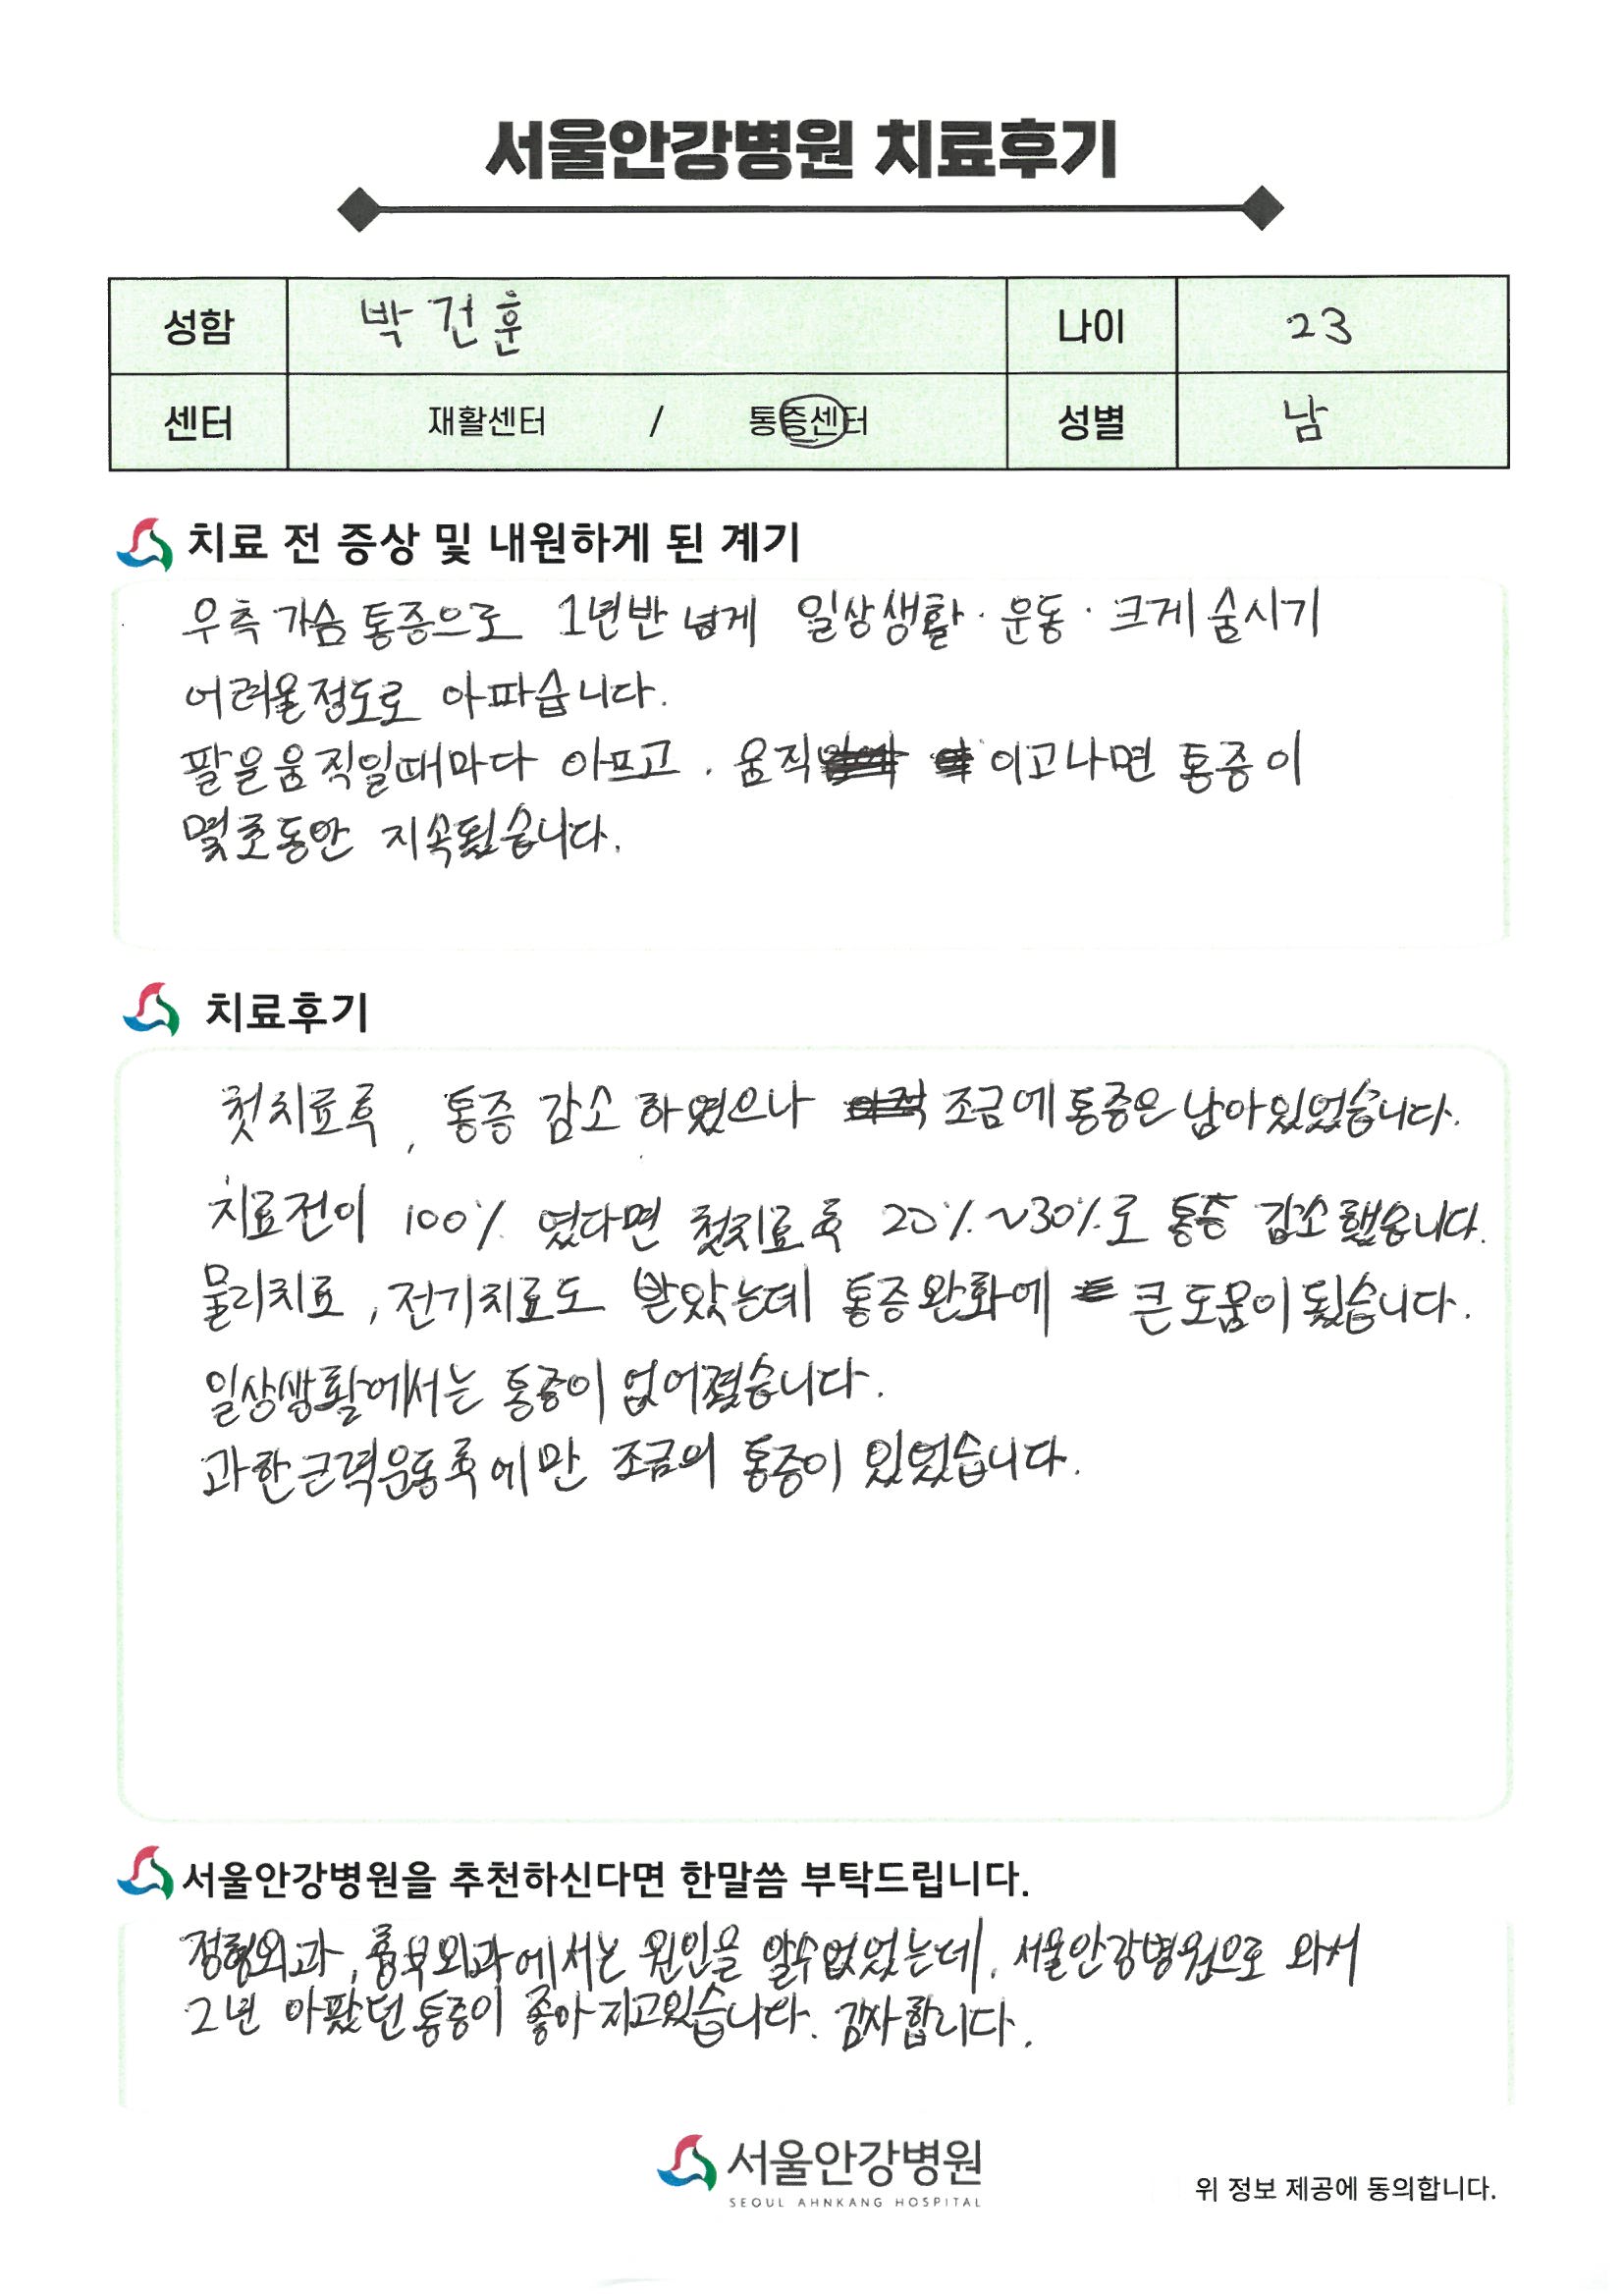 서울안강병원 치료후기
성함 박건훈 나이 23
센터 재활센터 / 통증센터 성별 남
치료 전 증상 및 내원하게 된 계기
우측 가슴 통증으로 1년반 넘게 일상생활·운동·크게 숨시기
어려울정도로 아파습니다.
팔을 움직일때마다 아프고. 움직 이고나면 통증이
몇초동안 지속됬습니다.
치료후기
첫치료후, 통증 감소 하였으나 조금에 통증은 남아있었습니다.
치료전이 100% 였다면 첫치료 후 20%~30%로 통증 감소했습니다.
물리치료, 전기치료도 받았는데 통증완화에 큰 도움이 됬습니다.
일상생활에서는 통증이 없어졌습니다.
과한근력운동 후에만 조금의 통증이 있었습니다.
서울안강병원을 추천하신다면 한말씀 부탁드립니다.
정형외과, 흉부외과에서는 원인을 알수없었는데, 서울안강병원으로 와서
2년 아팠던 통증이 좋아지고있습니다. 감사합니다.
서울안강병원
SEOUL AHNKANG HOSPITAL
위 정보 제공에 동의합니다.